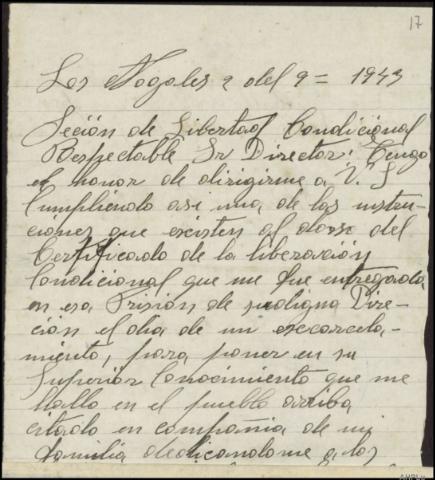 17
Los Nogales 2 del 9 = 1943
Seción de Libertad Condicional
Respectable Sr Director: Tengo
el honor de dirigirme a V. S
Cumpliendo asi una de las instru-
ciones que existen al dorso del
Certificado de la liberación
Condicional que me fue entregada
en esa Prisión de su digna Dire-
ción el dia de mi excarcela-
miento, para poner en su
Superiór Conocimiento que me
hallo en el pueblo arriba
citado en compania de mi
familia dedicandome a los